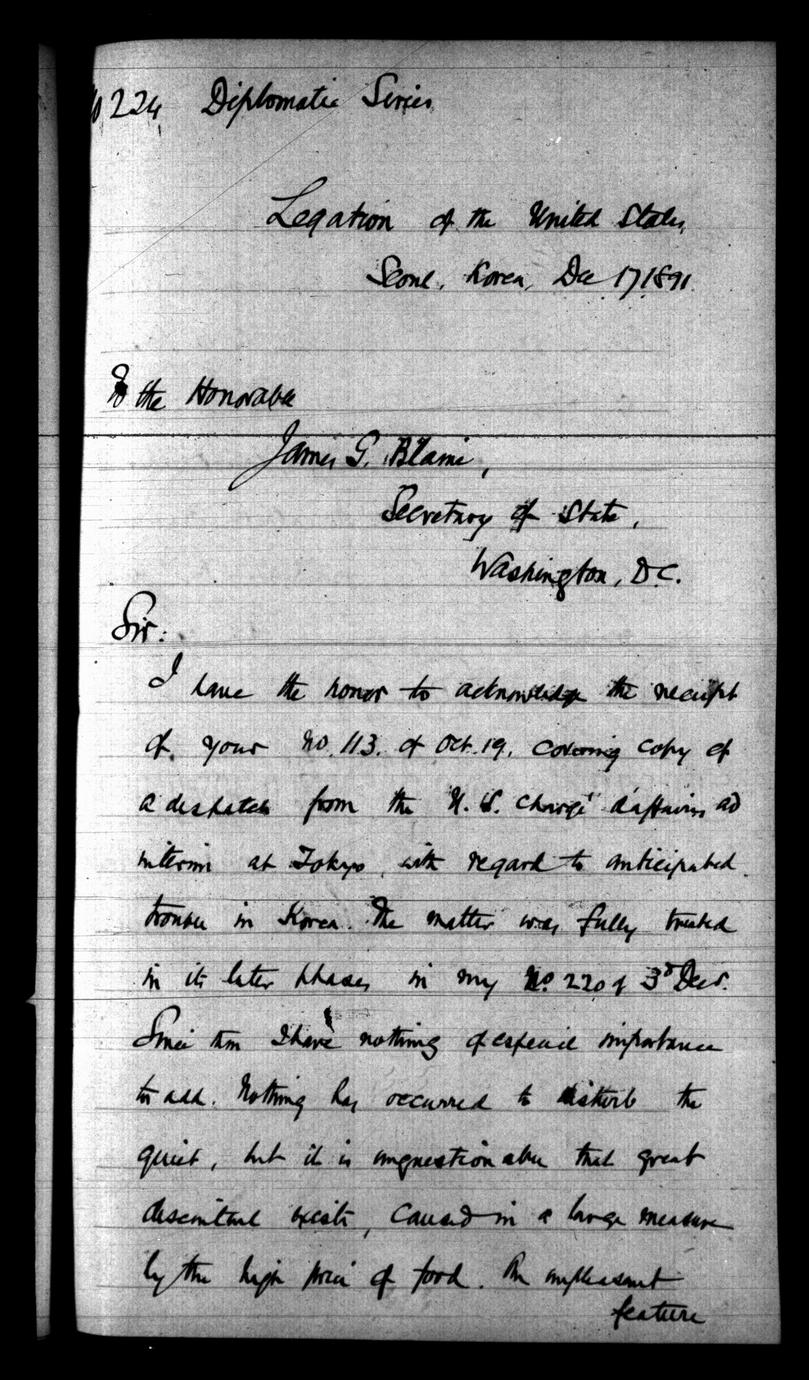 No 224 Diplomatic Series
Legation of the United States,
Seoul, Korea, Dec 17 1891.
To the Honorable
James G. Blaine,
Secretary of State,
Washington, D.C.
Sir:
I have the honor to acknowledge the receipt
of your No. 113. of Oct. 19. covering copy of
a despatch from the U.S. Chargé d'affaires ad
interim at Tokyo, with regard to anticipated
trouble in Korea. The matter was fully treated
in its later phases in my No. 220 of 3rd
Since then I have nothing of especial importance
to add. Nothing has occurred to disturb the
quiet, but it is unquestionable that great
discontent exists, caused in a large measure
by the high price of food. An unpleasant
feature